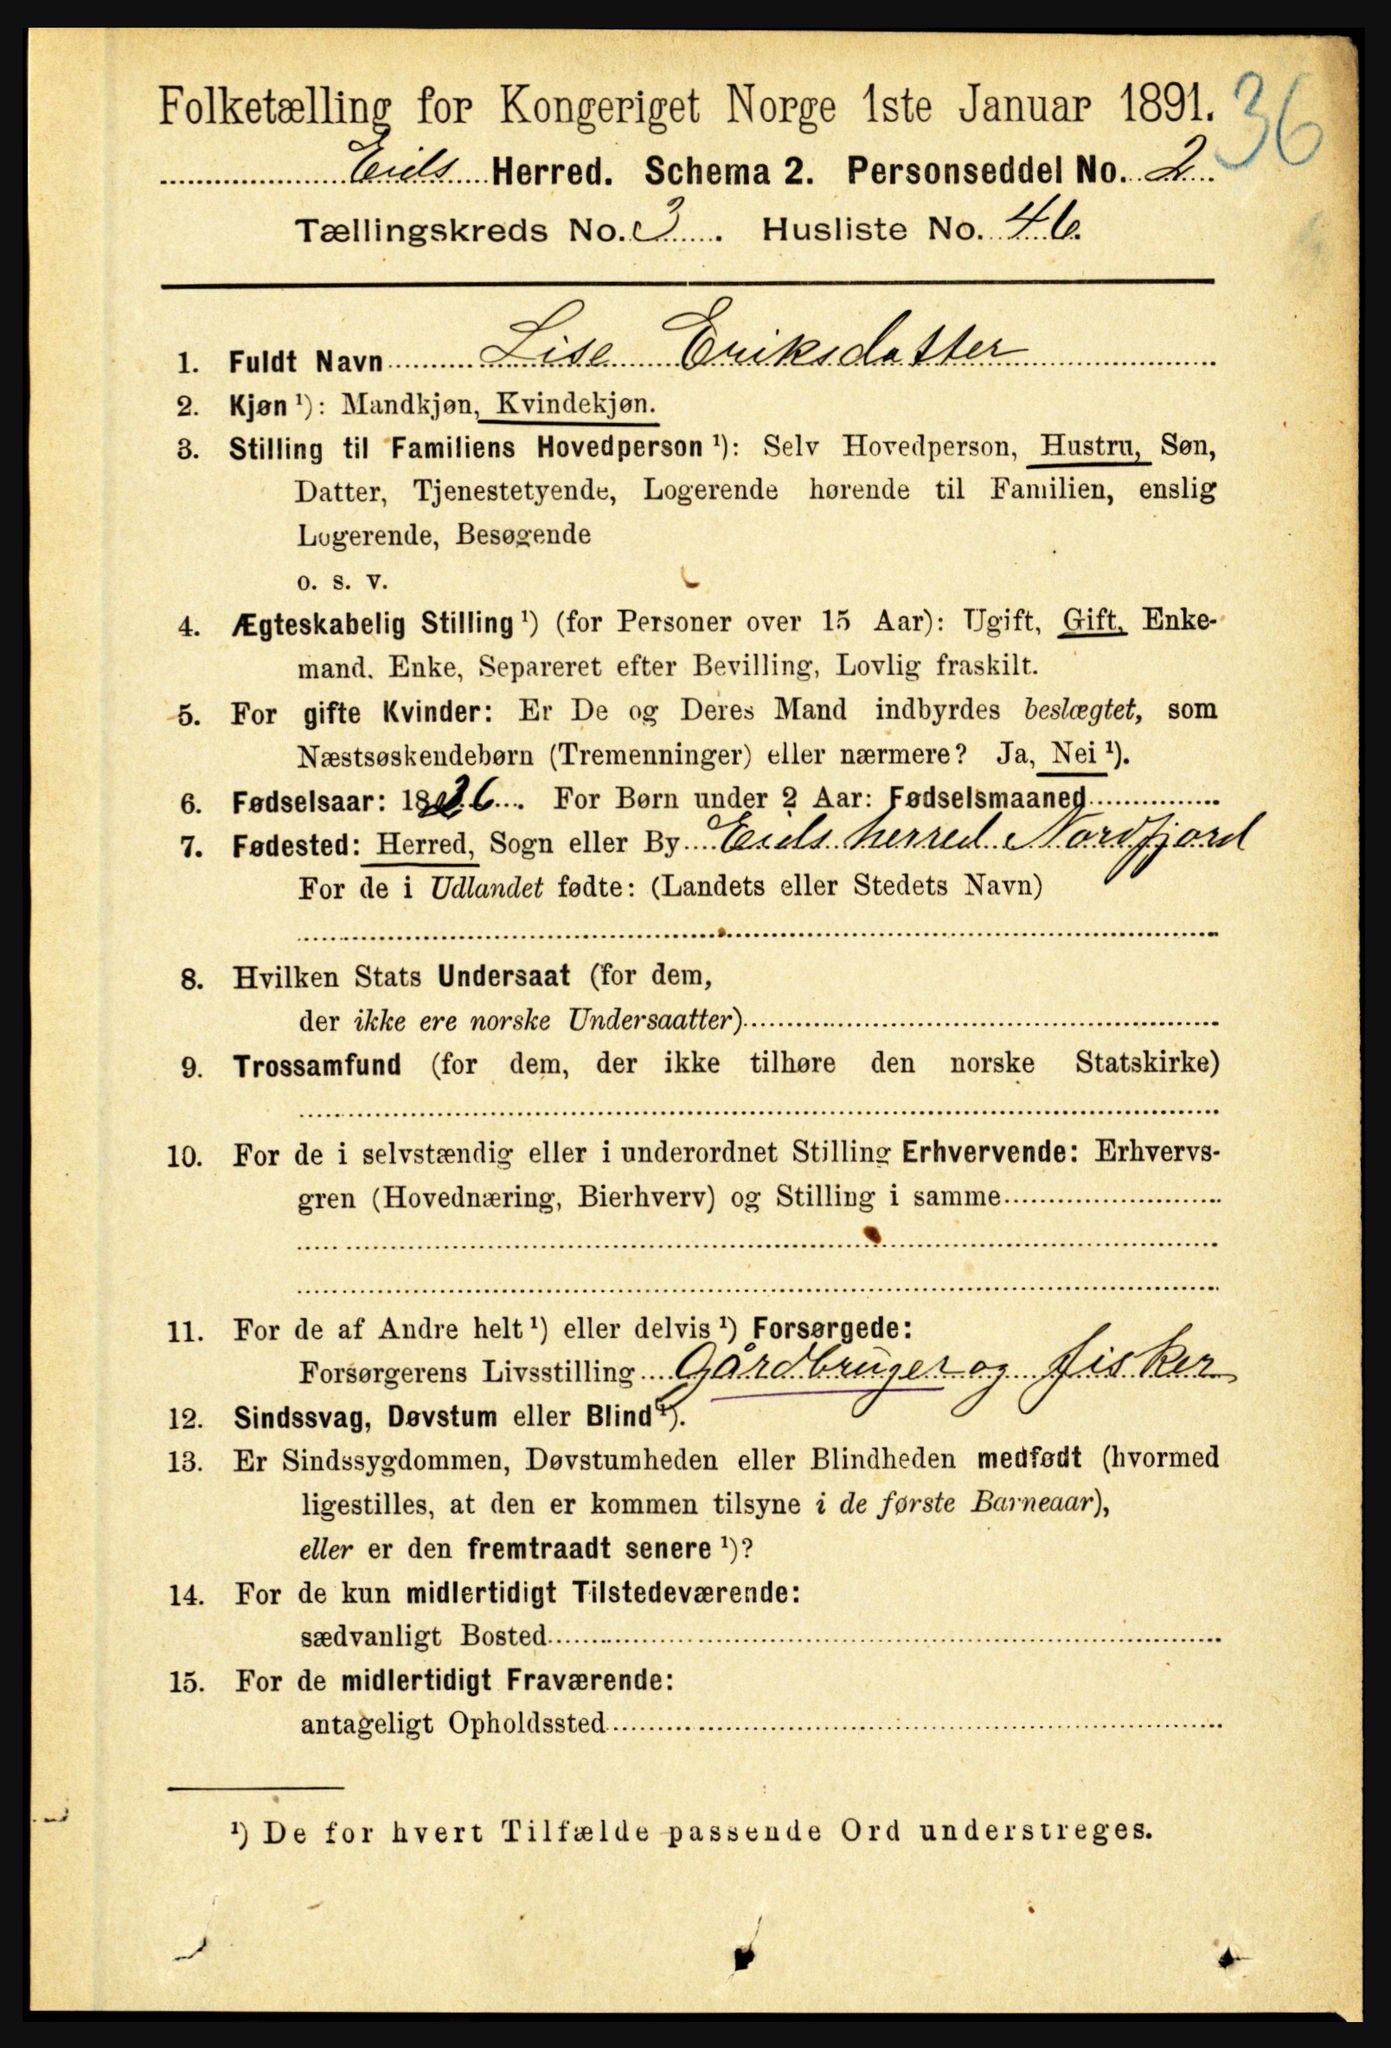 Folketælling for Kongeriget Norge 1ste Januar 1891. 36
Eids Herred. Schema 2. Personseddel No. 2
Tællingskreds No. 3. Husliste No. 46.
1. Fuldt Navn Lise Eriksdatter
2. Kjøn ¹): Mandkjøn, Kvindekjøn.
3. Stilling til Familiens Hovedperson ¹): Selv Hovedperson, Hustru, Søn,
Datter, Tjenestetyende, Logerende hørende til Familien, enslig
Logerende, Besøgende
o. s. v.
4. Ægteskabelig Stilling ¹) (for Personer over 15 Aar): Ugift, Gift, Enke-
mand. Enke, Separeret efter Bevilling, Lovlig fraskilt.
5. For gifte Kvinder: Er De og Deres Mand indbyrdes beslægtet, som
Næstsøskendebørn (Tremenninger) eller nærmere? Ja, Nei ¹).
6. Fødselsaar: 1826. For Børn under 2 Aar: Fødselsmaaned
7. Fødested: Herred, Sogn eller By Eids herred Nordfjord
For de i Udlandet fødte: (Landets eller Stedets Navn)
8. Hvilken Stats Undersaat (for dem,
der ikke ere norske Undersaatter)
9. Trossamfund (for dem, der ikke tilhøre den norske Statskirke)
10. For de i selvstændig eller i underordnet Stilling Erhvervende: Erhvervs-
gren (Hovednæring, Bierhverv) og Stilling i samme
11. For de af Andre helt ¹) eller delvis ¹) Forsørgede:
Forsørgerens Livsstilling Gårdbruger og fisker
12. Sindssvag, Døvstum eller Blind ¹).
13. Er Sindssygdommen, Døvstumheden eller Blindheden medfødt (hvormed
ligestilles, at den er kommen tilsyne i de første Barneaar),
eller er den fremtraadt senere ¹)?
14. For de kun midlertidigt Tilstedeværende:
sædvanligt Bosted
15. For de midlertidigt Fraværende:
antageligt Opholdssted
¹) De for hvert Tilfælde passende Ord understreges.